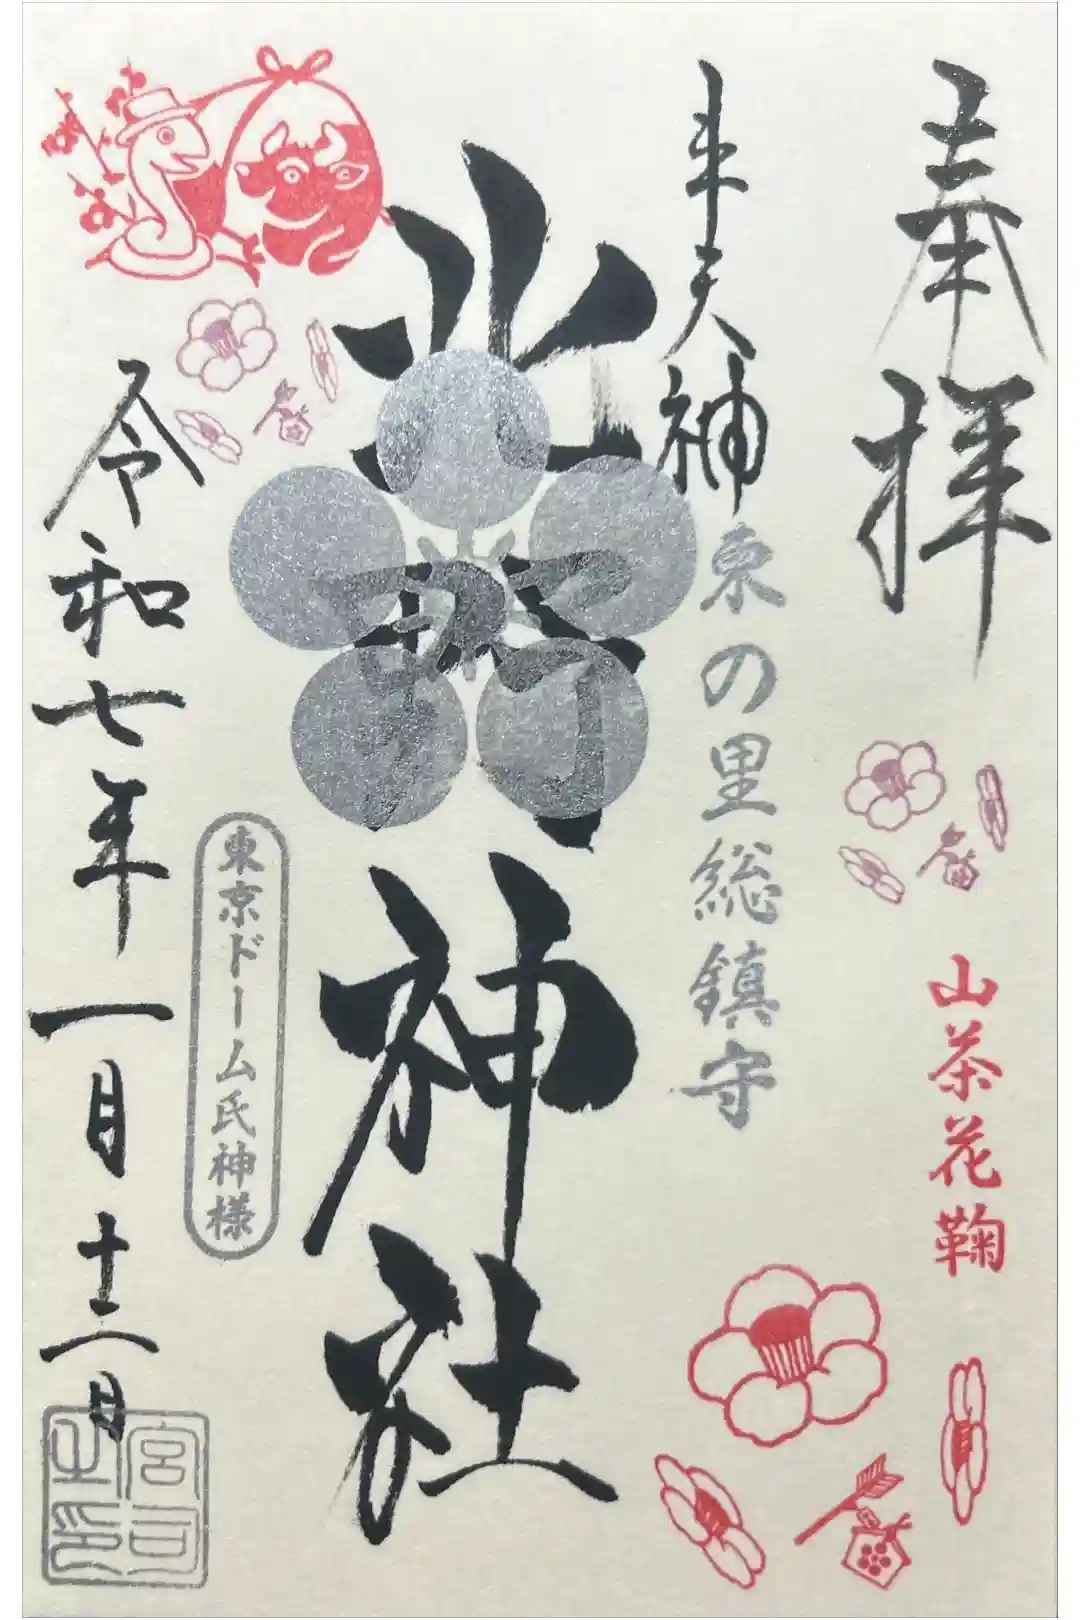 奉拝
山茶花鞠
牛天神
東の里総鎮守
北野神社
東京ドーム氏神様
令和七年一月十二日
宮司之印